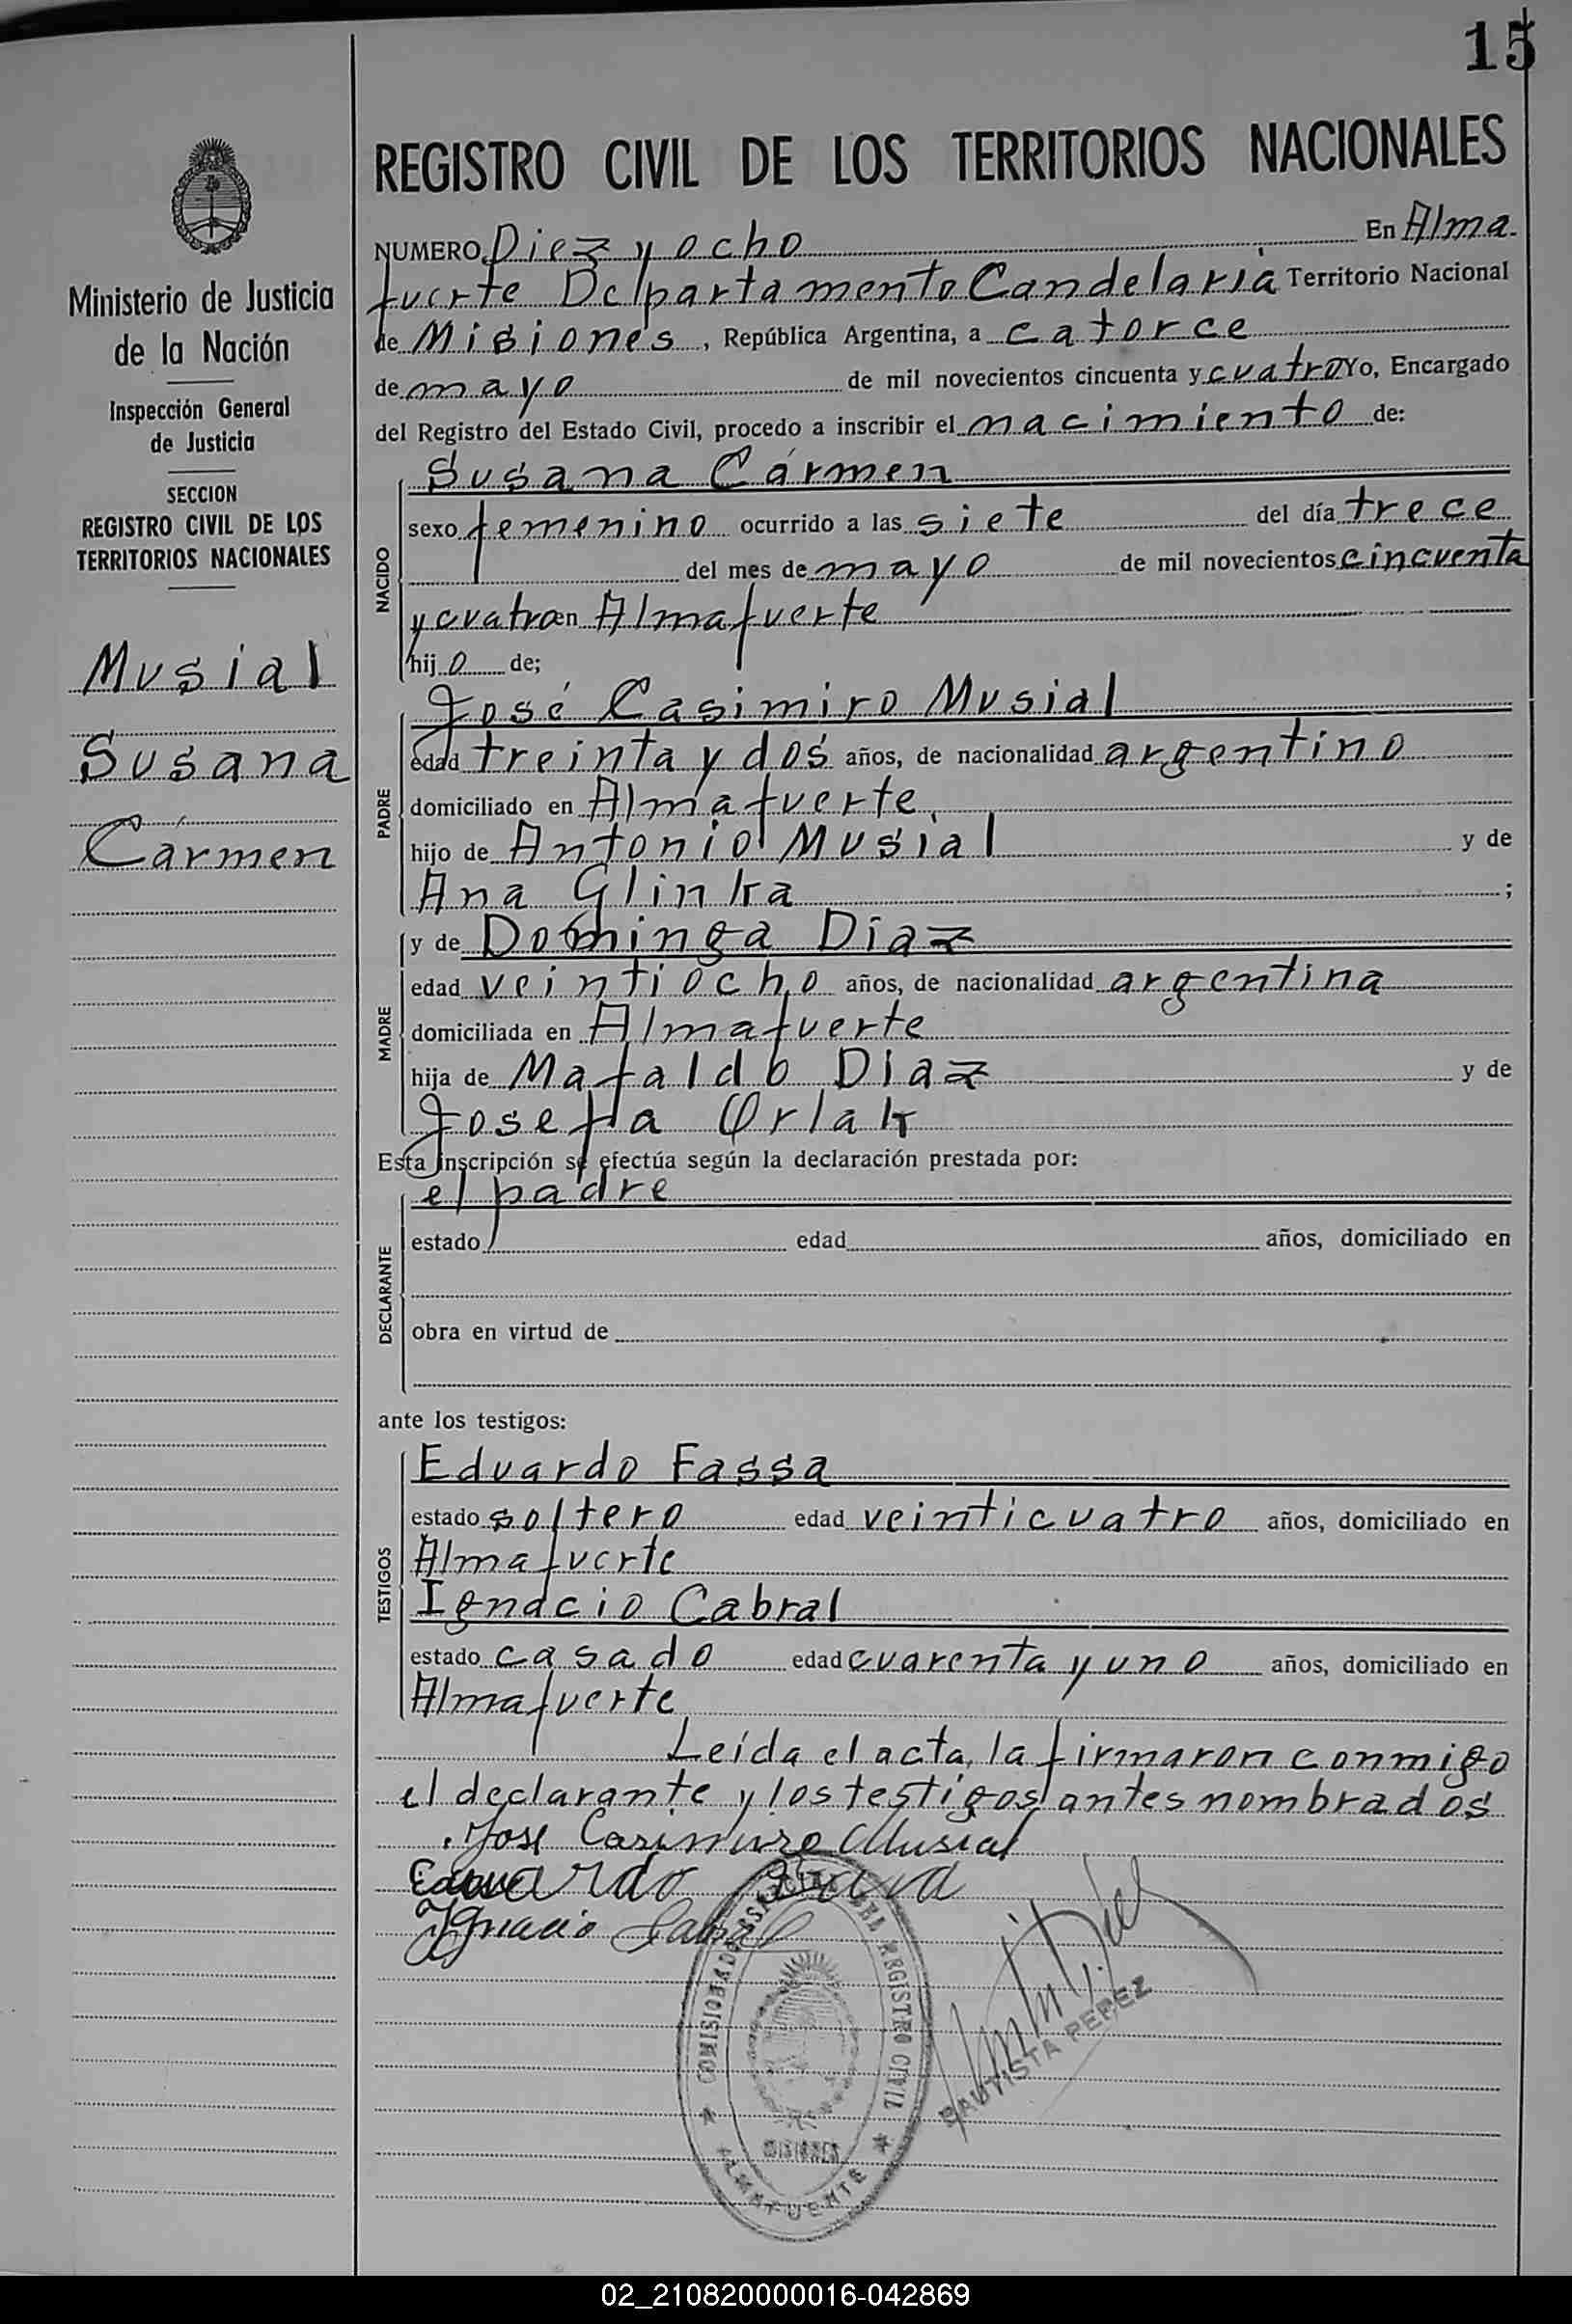 15
REGISTRO CIVIL DE LOS TERRITORIOS NACIONALES
Ministerio de Justicia
de la Nación
Inspección General
de Justicia
SECCION
REGISTRO CIVIL DE LOS
TERRITORIOS NACIONALES
Musial
Susana
Cármen
NUMERO Diez y ocho En Alma-
fuerte Departamento Candelaria Territorio Nacional
de Misiones, República Argentina, a catorce
de mayo de mil novecientos cincuenta y cuatro Yo, Encargado
del Registro del Estado Civil, procedo a inscribir el nacimiento de:
NACIDO
Susana Cármen
sexo femenino ocurrido a las siete del día trece
del mes de mayo de mil novecientos cincuenta
y cuatro en Almafuerte
hijo de;
PADRE
José Casimiro Musial
edad treinta y dos años, de nacionalidad argentino
domiciliado en Almafuerte
hijo de Antonio Musial y de
Ana Glinka ;
MADRE
y de Dominga Diaz
edad veintiocho años, de nacionalidad argentina
domiciliada en Almafuerte
hija de Mafaldo Diaz y de
Josefa Orlak
Esta inscripción se efectúa según la declaración prestada por:
DECLARANTE
el padre
estado edad años, domiciliado en
obra en virtud de
ante los testigos:
TESTIGOS
Eduardo Fassa
estado soltero edad veinticuatro años, domiciliado en
Almafuerte
Ignacio Cabral
estado casado edad cuarenta y uno años, domiciliado en
Almafuerte
Leída el acta, la firmaron conmigo
el declarante y los testigos antes nombrados
José Casimiro Musial
Eduardo
Ignacio Cabral
DEL REGISTRO CIVIL
MISIONES
ALMAFUERTE
BAUTISTA PEREZ
02_210820000016-042869